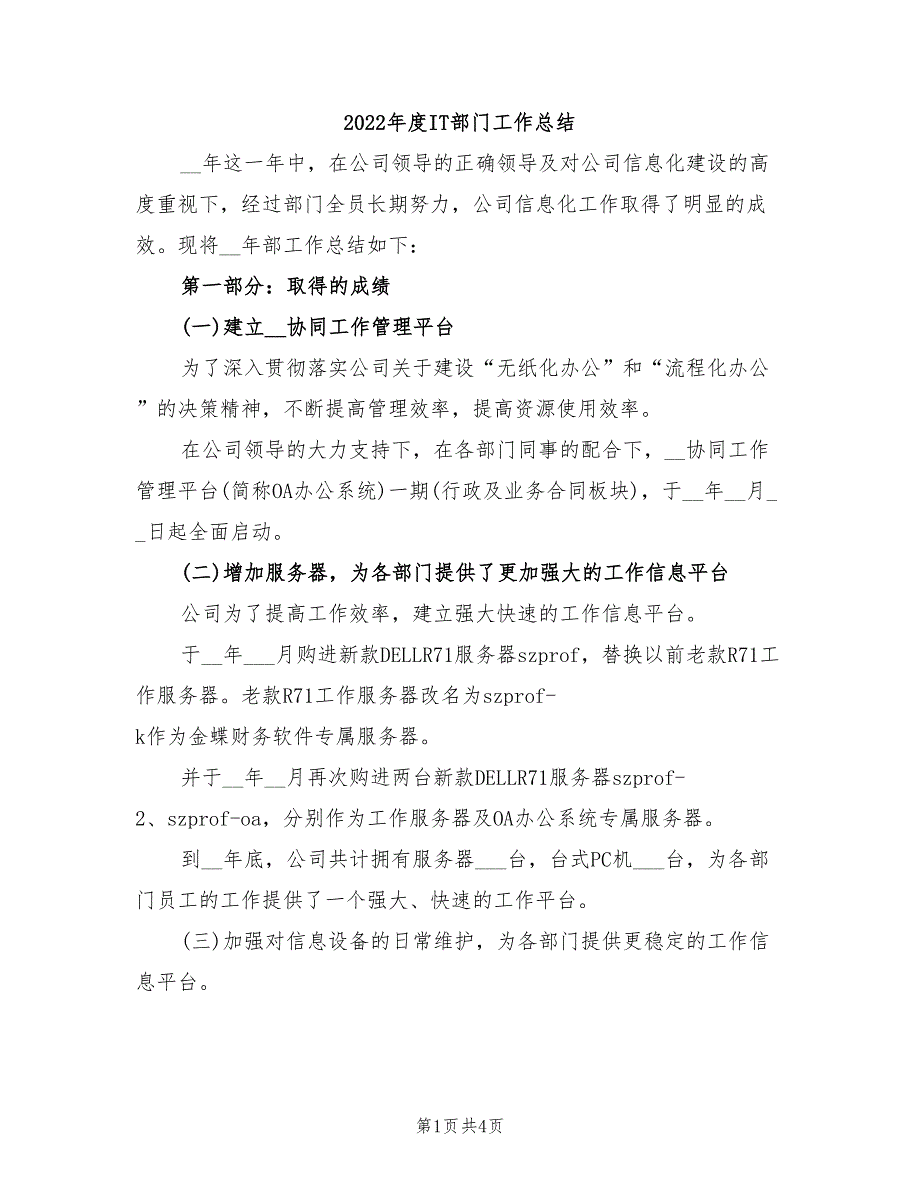 2022年度IT部门工作总结
__年这一年中，在公司领导的正确领导及对公司信息化建设的高
度重视下，经过部门全员长期努力，公司信息化工作取得了明显的成
效。现将__年部工作总结如下：
第一部分：取得的成绩
(一)建立__协同工作管理平台
为了深入贯彻落实公司关于建设“无纸化办公”和“流程化办公
”的决策精神，不断提高管理效率，提高资源使用效率。
在公司领导的大力支持下，在各部门同事的配合下，__协同工作
管理平台(简称OA办公系统)一期(行政及业务合同板块)，于__年__月_
_日起全面启动。
(二)增加服务器，为各部门提供了更加强大的工作信息平台
公司为了提高工作效率，建立强大快速的工作信息平台。
于__年___月购进新款DELLR71服务器szprof，替换以前老款R71工
作服务器。老款R71工作服务器改名为szprof-
k作为金蝶财务软件专属服务器。
并于__年__月再次购进两台新款DELLR71服务器szprof-
2、szprof-oa，分别作为工作服务器及OA办公系统专属服务器。
到__年底，公司共计拥有服务器___台，台式PC机___台，为各部
门员工的工作提供了一个强大、快速的工作平台。
(三)加强对信息设备的日常维护，为各部门提供更稳定的工作信
息平台。
第1页共4页